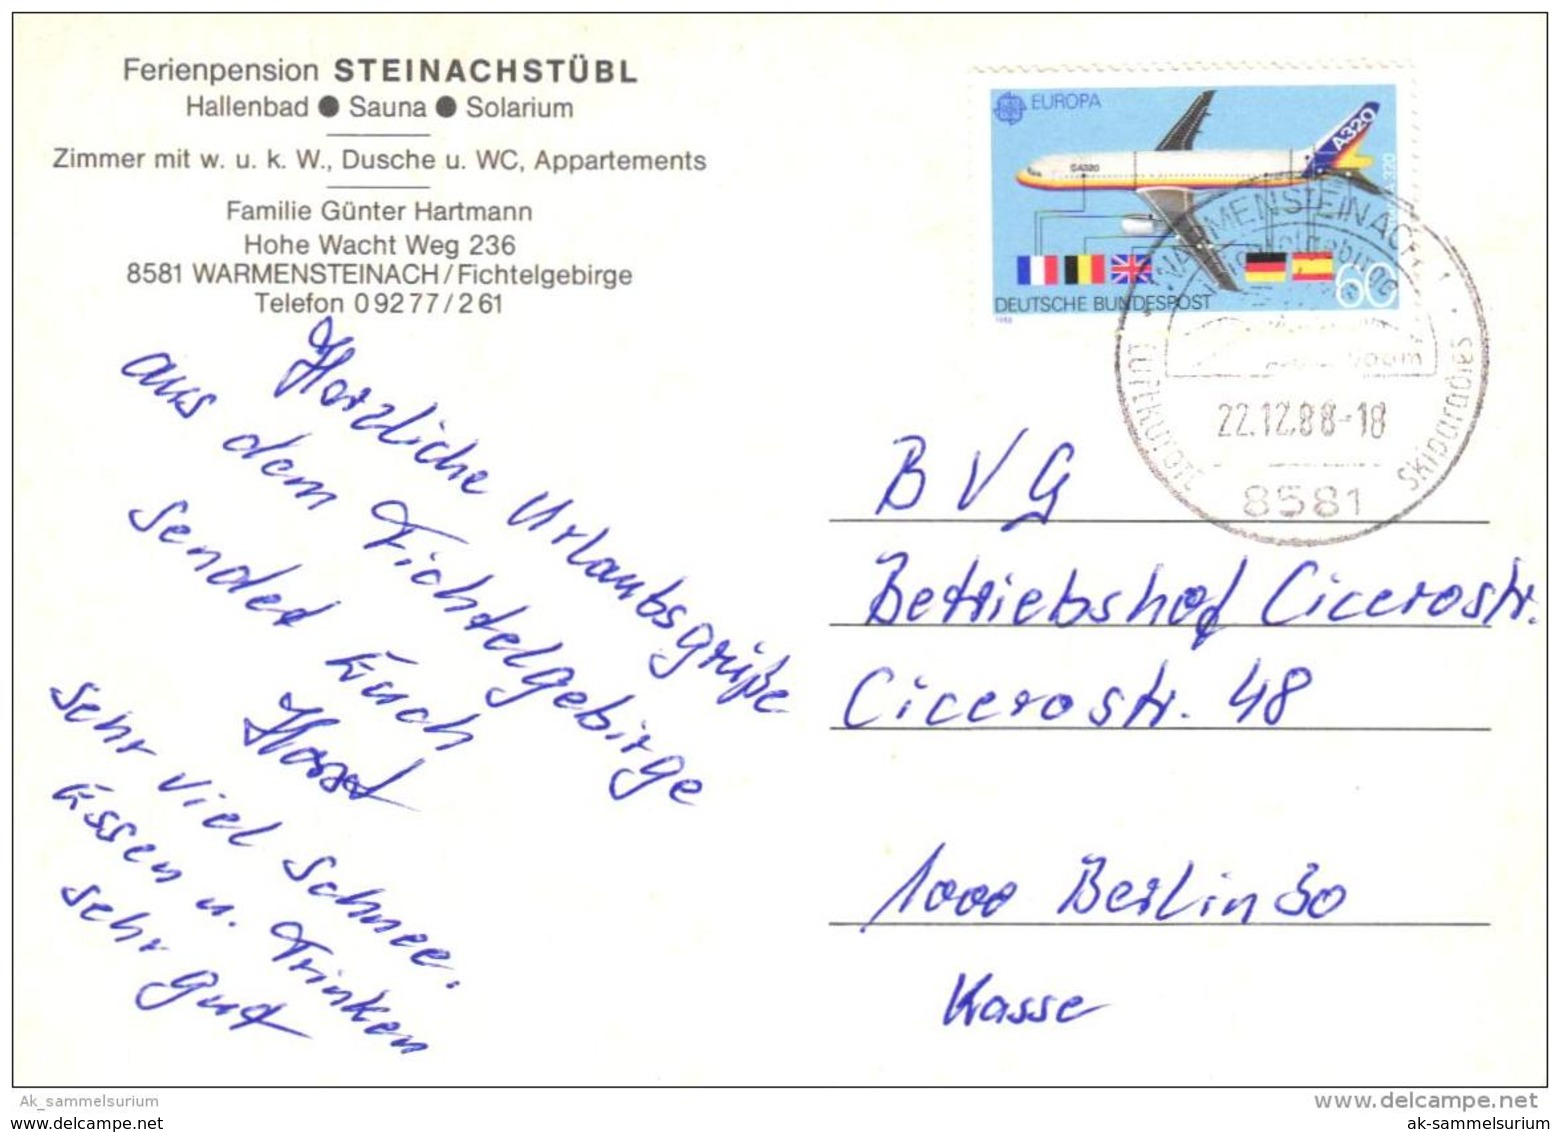 Ferienpension STEINACHSTÜBL
Hallenbad ● Sauna ● Solarium
Zimmer mit w. u. k. W., Dusche u. WC, Appartements
Familie Günter Hartmann
Hohe Wacht Weg 236
8581 WARMENSTEINACH/Fichtelgebirge
Telefon 0 92 77 / 2 61
Herzliche Urlaubsgrüße
aus dem Fichtelgebirge
sendet Euch
Horst
Sehr viel Schnee.
Essen u. Trinken
sehr gut
EUROPA
A320
GA320
DEUTSCHE BUNDESPOST
60
1988
WARMENSTEINACH 1
Fichtelgebirge
LUFTKURORT
Skiparadies
22.12.88-18
8581
B V G
Betriebshof Cicerostr.
Cicerostr. 48
1000 Berlin 30
Kasse
Ak_sammelsurium
www.delcampe.net
www.delcampe.net
ak-sammelsurium